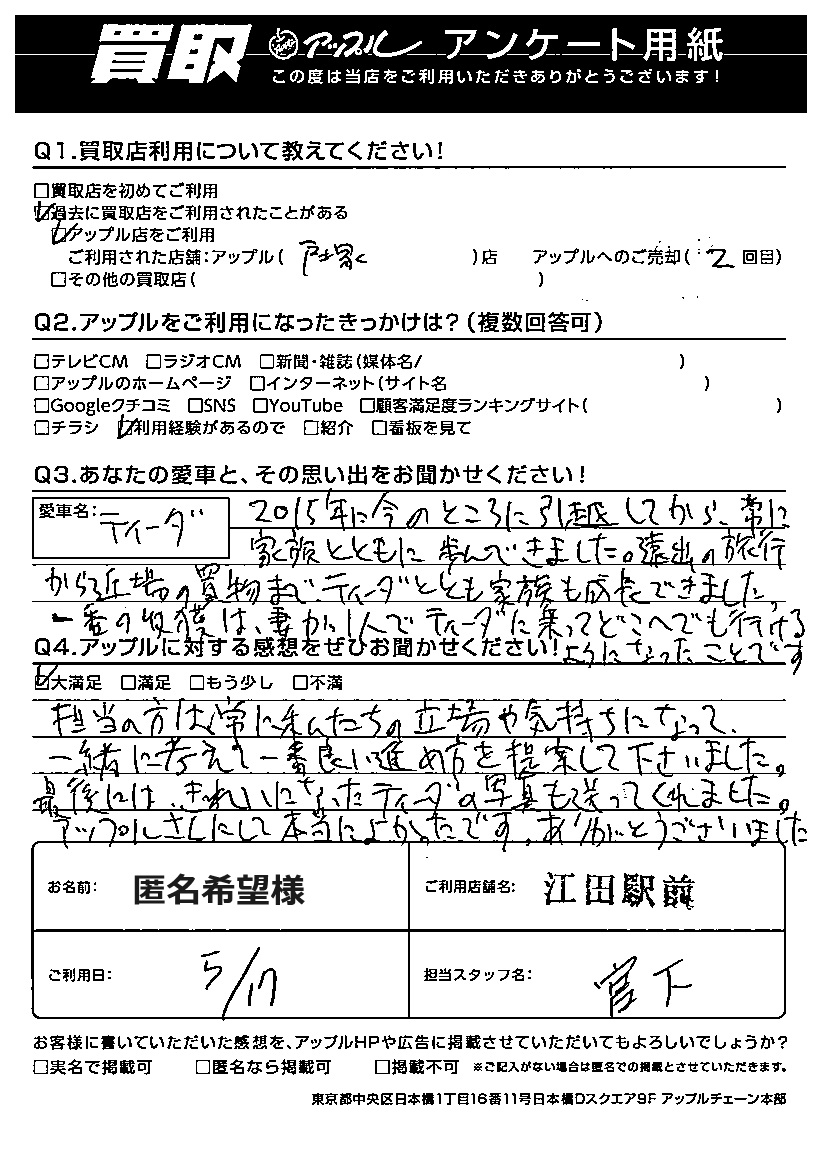 買取 アップル アンケート用紙
この度は当店をご利用いただきありがとうございます!
Q1.買取店利用について教えてください!
□買取店を初めてご利用
☑過去に買取店をご利用されたことがある
☑アップル店をご利用
ご利用された店舗:アップル( 戸塚 )店 アップルへのご売却( 2 回目)
□その他の買取店( )
Q2.アップルをご利用になったきっかけは?(複数回答可)
□テレビCM □ラジオCM □新聞・雑誌(媒体名/ )
□アップルのホームページ □インターネット(サイト名 )
□Googleクチコミ □SNS □YouTube □顧客満足度ランキングサイト( )
□チラシ ☑利用経験があるので □紹介 □看板を見て
Q3.あなたの愛車と、その思い出をお聞かせください!
愛車名: ティーダ
2015年に今のところに引越してから、常に
家族とともに歩んできました。遠出の旅行
から近場の買物まで、ティーダととも家族も成長できました。
一番の収穫は、妻が1人でティーダに乗ってどこへでも行ける
ようになったことです
Q4.アップルに対する感想をぜひお聞かせください!
☑大満足 □満足 □もう少し □不満
担当の方は常に私たちの立場や気持ちになって、
一緒に考えて一番良い進め方を提案して下さいました。
最後には、きれいになったティーダの写真も送ってくれました。
アップルさんにして本当によかったです。ありがとうございました
お名前: 匿名希望様
ご利用店舗名: 江田駅前
ご利用日: 5/17
担当スタッフ名: 宮下
お客様に書いていただいた感想を、アップルHPや広告に掲載させていただいてもよろしいでしょうか?
□実名で掲載可 □匿名なら掲載可 □掲載不可 ※ご記入がない場合は匿名での掲載とさせていただきます。
東京都中央区日本橋1丁目16番11号日本橋Dスクエア9F アップルチェーン本部